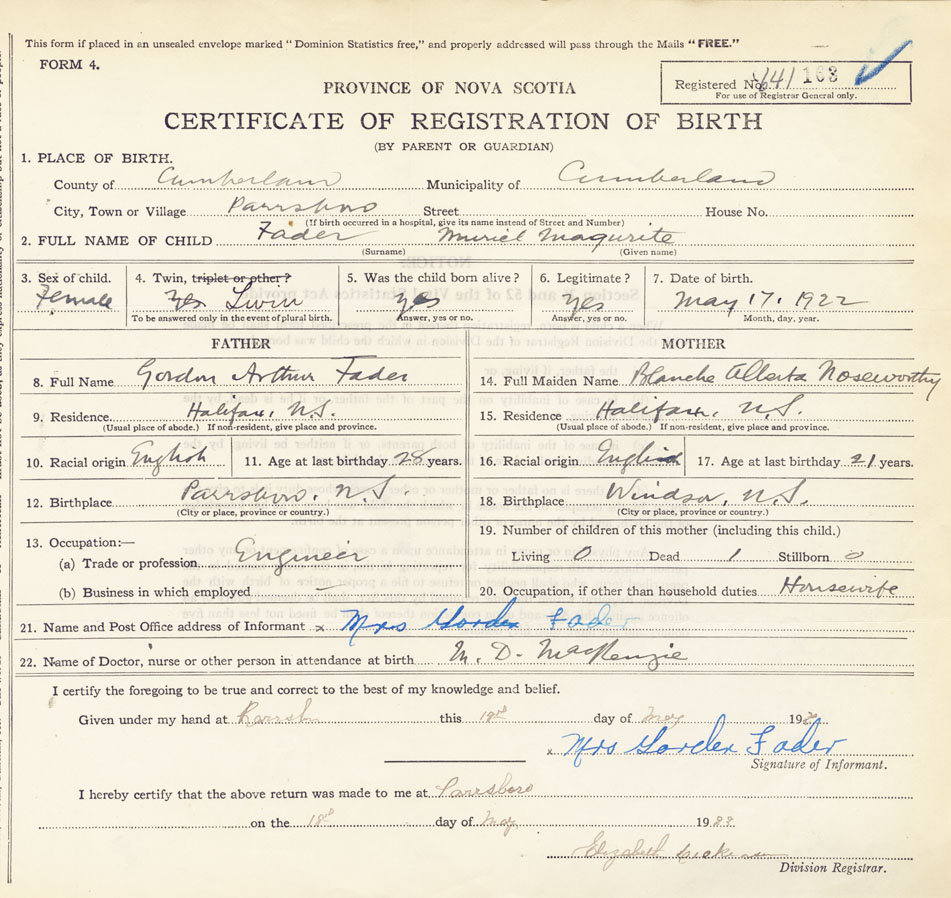 This form if placed in an unsealed envelope marked "Dominion Statistics free," and properly addressed will pass through the Mails "FREE."
FORM 4.
Registered No. 163
For use of Registrar General only.
PROVINCE OF NOVA SCOTIA
CERTIFICATE OF REGISTRATION OF BIRTH
(BY PARENT OR GUARDIAN)
1. PLACE OF BIRTH.
County of Cumberland Municipality of Cumberland
City, Town or Village Parrsboro Street House No.
(If birth occurred in a hospital, give its name instead of Street and Number)
2. FULL NAME OF CHILD Fader Muriel Magurite
(Surname) (Given name)
3. Sex of child. 4. Twin, triplet or other? 5. Was the child born alive? 6. Legitimate? 7. Date of birth.
Female Yes Twin Yes Yes May 17. 1922
To be answered only in the event of plural birth. Answer, yes or no. Answer, yes or no. Month, day, year.
FATHER MOTHER
8. Full Name Gordon Arthur Fader 14. Full Maiden Name Blanche Alberta Noseworthy
9. Residence. Halifax, N.S. 15. Residence Halifax, N.S.
(Usual place of abode.) If non-resident, give place and province. (Usual place of abode.) If non-resident, give place and province.
10. Racial origin English 11. Age at last birthday 28 years. 16. Racial origin English 17. Age at last birthday 21 years.
12. Birthplace Parrsboro, N.S. 18. Birthplace Windsor, N.S.
(City or place, province or country.) (City or place, province or country.)
13. Occupation:— 19. Number of children of this mother (including this child.)
(a) Trade or profession Engineer Living 0 Dead 1 Stillborn 0
(b) Business in which employed — 20. Occupation, if other than household duties Housewife
21. Name and Post Office address of Informant x Mrs Gorden Fader
22. Name of Doctor, nurse or other person in attendance at birth M. D. MacKenzie
I certify the foregoing to be true and correct to the best of my knowledge and belief.
Given under my hand at this day of May 19
x Mrs Gorden Fader
Signature of Informant.
I hereby certify that the above return was made to me at Parrsboro
on the 18th day of May 1922
Elizabeth
Division Registrar.